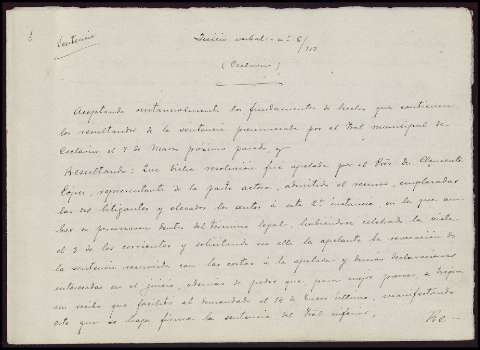 Sentencia
Juicio verbal - nº 6/
(Ceclavin)
Aceptando sustancialmente los fundamentos de hecho que contienen
los resultandos de la sentencia pronunciada por el Tral municipal de
Ceclavin el 7 de Marzo próximo pasado, y
Resultando: Que dicha resolución fué apelada por el Dn. Clemente
López, representante de la parte actora, admitido el recurso, emplazadas
las litigantes y elevados los autos á esta 2ª instancia, en la que am-
bos se personaron dentro del término legal, habiéndose celebrado la vista
el 2 de los corrientes y solicitando en ella la apelante la revocación de
la sentencia recurrida con las costas á la apelada y demás declaraciones
interesadas en el juicio, además de pedir que para mejor proveer, se trajera
un recibo que facilitó al demandado el 14 de Enero último, manifestando
este que se haga firme la sentencia del Tral inferior.
Re-